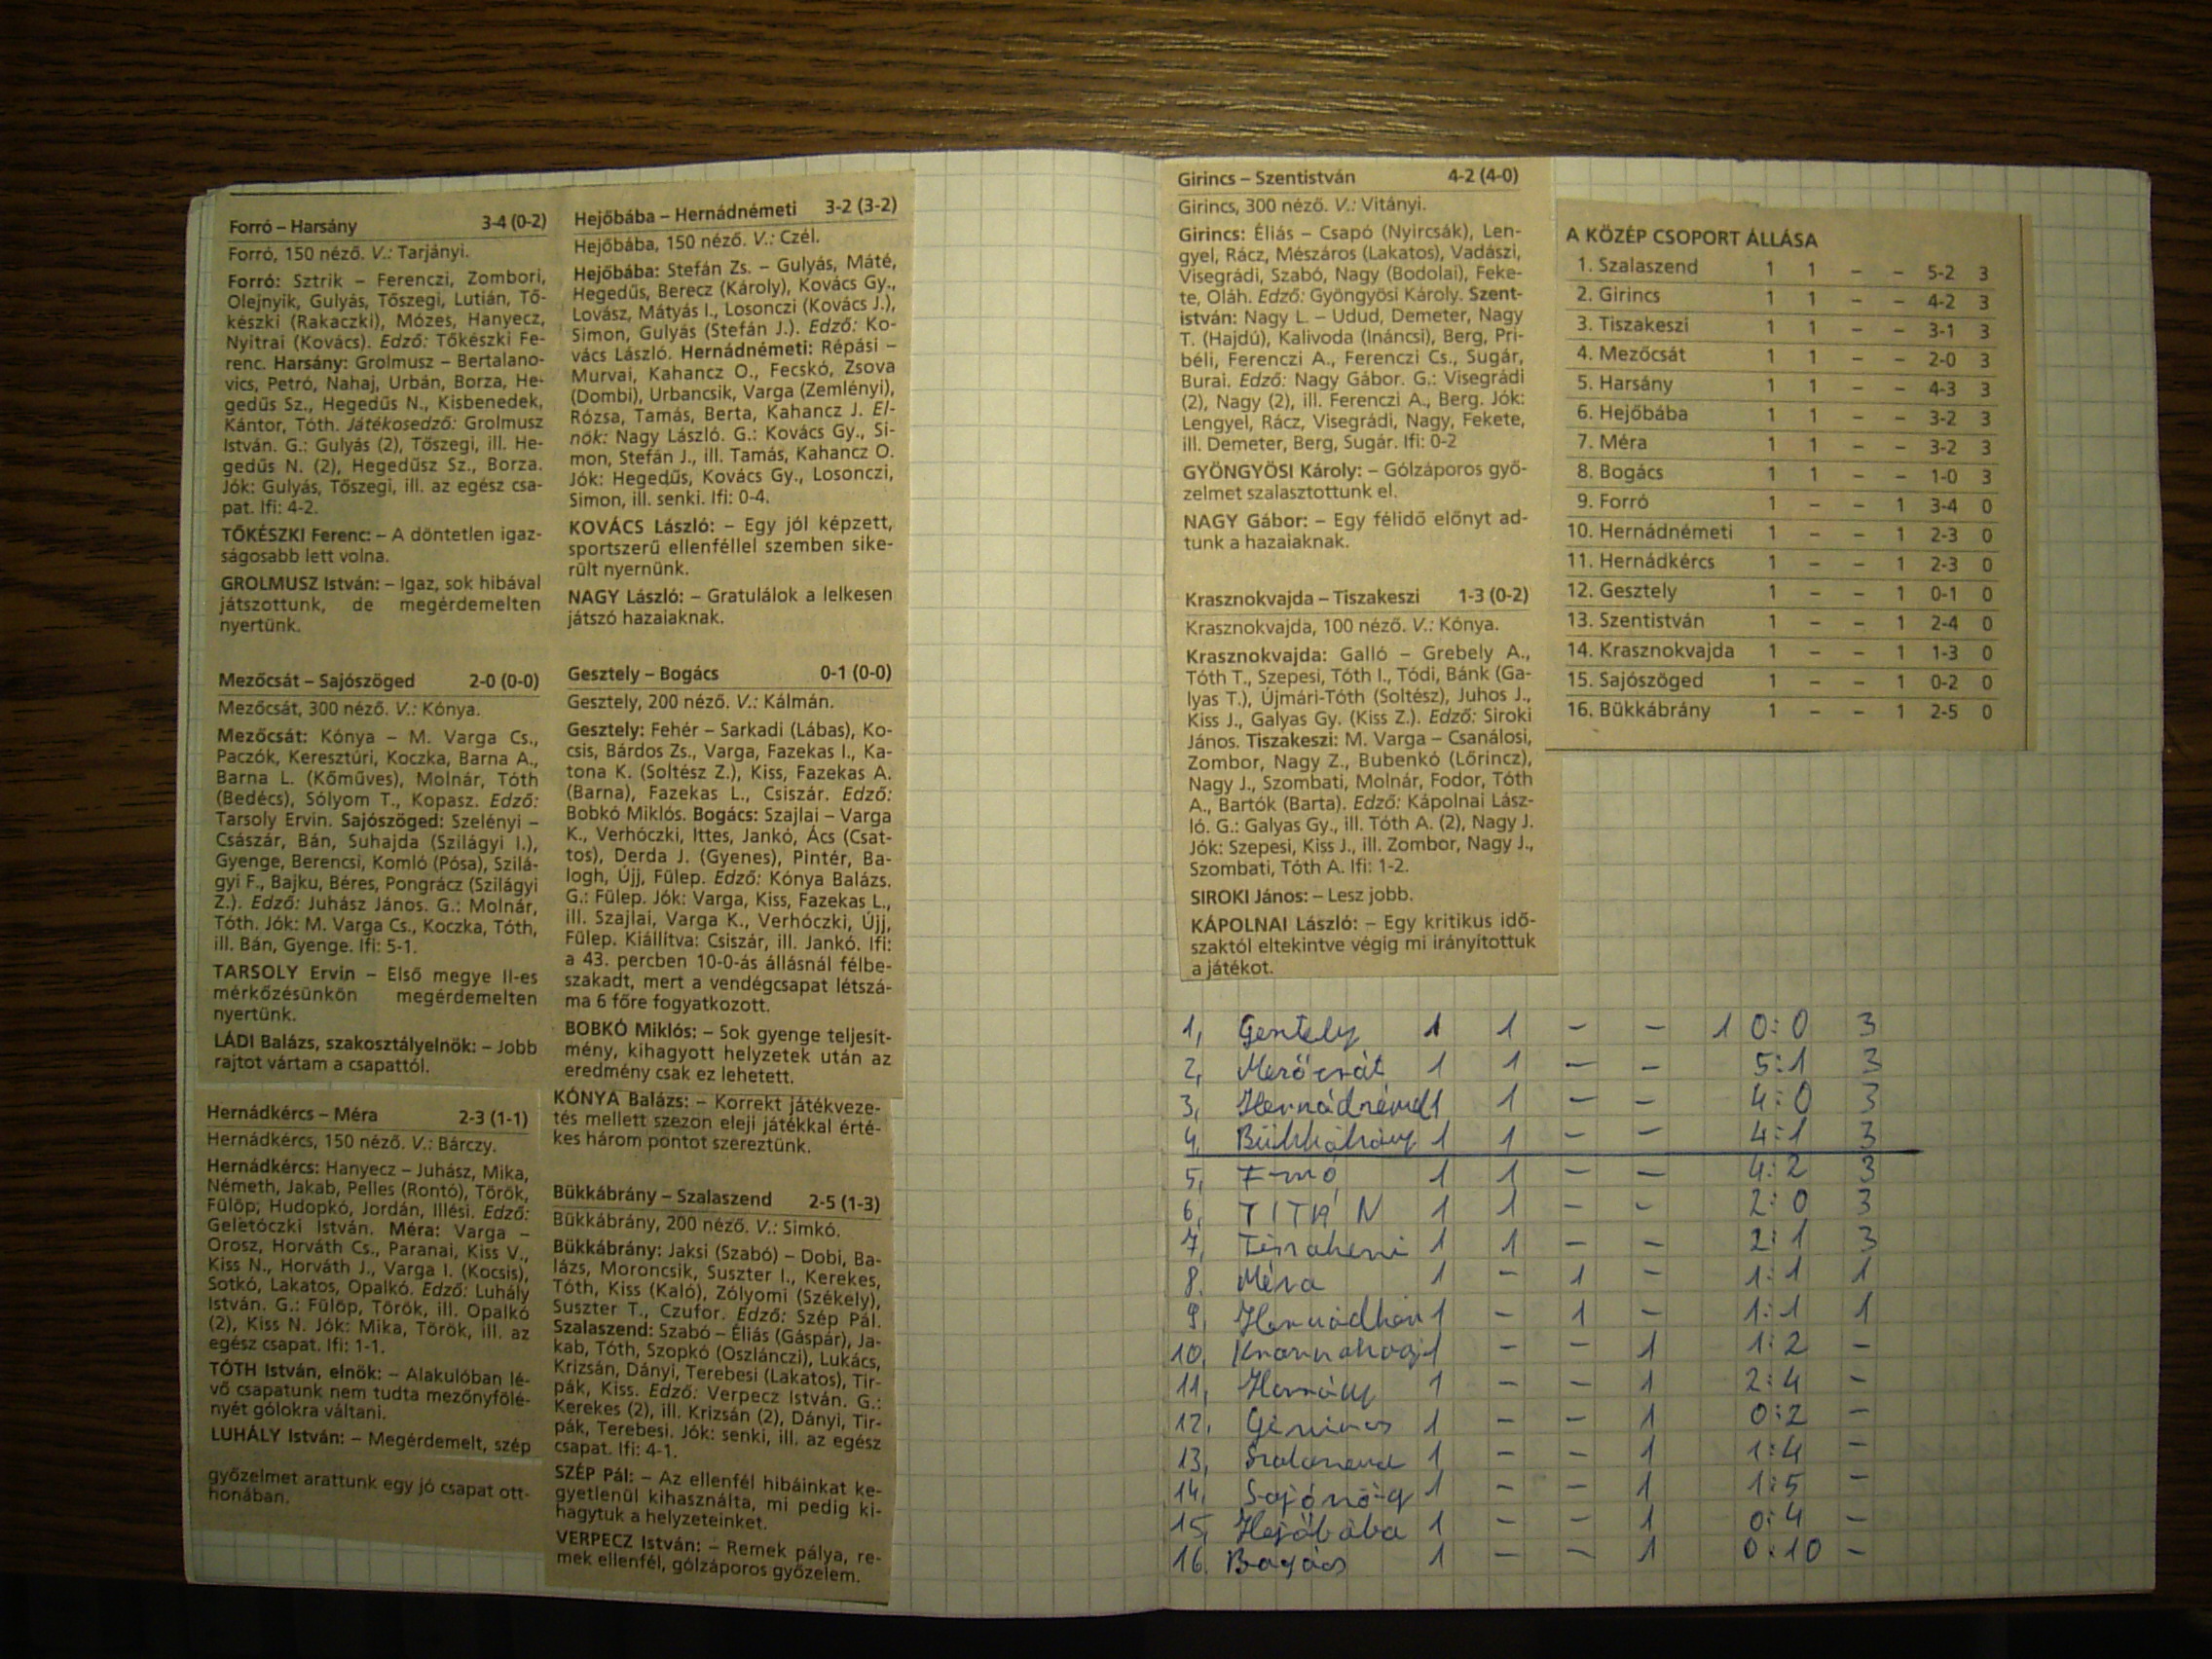 Forró – Harsány 3-4 (0-2)
Forró, 150 néző. V.: Tarjányi.
Forró: Sztrik – Ferenczi, Zombori,
Olejnyik, Gulyás, Tőszegi, Lutián, Tő-
készki (Rakaczki), Mózes, Hanyecz,
Nyitrai (Kovács). Edző: Tőkészki Fe-
renc. Harsány: Grolmusz – Bertalano-
vics, Petró, Nahaj, Urbán, Borza, He-
gedűs Sz., Hegedűs N., Kisbenedek,
Kántor, Tóth. Játékosedző: Grolmusz
István. G.: Gulyás (2), Tőszegi, ill. He-
gedűs N. (2), Hegedűsz Sz., Borza.
Jók: Gulyás, Tőszegi, ill. az egész csa-
pat. Ifi: 4-2.
TŐKÉSZKI Ferenc: – A döntetlen igaz-
ságosabb lett volna.
GROLMUSZ István: – Igaz, sok hibával
játszottunk, de megérdemelten
nyertünk.
Mezőcsát – Sajószöged 2-0 (0-0)
Mezőcsát, 300 néző. V.: Kónya.
Mezőcsát: Kónya – M. Varga Cs.,
Paczók, Keresztúri, Koczka, Barna A.,
Barna L. (Kőműves), Molnár, Tóth
(Bedécs), Sólyom T., Kopasz. Edző:
Tarsoly Ervin. Sajószöged: Szelényi –
Császár, Bán, Suhajda (Szilágyi I.),
Gyenge, Berencsi, Komló (Pósa), Szilá-
gyi F., Bajku, Béres, Pongrácz (Szilágyi
Z.). Edző: Juhász János. G.: Molnár,
Tóth. Jók: M. Varga Cs., Koczka, Tóth,
ill. Bán, Gyenge. Ifi: 5-1.
TARSOLY Ervin – Első megye II-es
mérkőzésünkön megérdemelten
nyertünk.
LÁDI Balázs, szakosztályelnök: – Jobb
rajtot vártam a csapattól.
Hernádkércs – Méra 2-3 (1-1)
Hernádkércs, 150 néző. V.: Bárczy.
Hernádkércs: Hanyecz – Juhász, Mika,
Németh, Jakab, Pelles (Rontó), Török,
Fülöp, Hudopkó, Jordán, Illési. Edző:
Geletóczki István. Méra: Varga –
Orosz, Horváth Cs., Paranai, Kiss V.,
Kiss N., Horváth J., Varga I. (Kocsis),
Sotkó, Lakatos, Opalkó. Edző: Luhály
István. G.: Fülöp, Török, ill. Opalkó
(2), Kiss N. Jók: Mika, Török, ill. az
egész csapat. Ifi: 1-1.
TÓTH István, elnök: – Alakulóban lé-
vő csapatunk nem tudta mezőnyfölé-
nyét gólokra váltani.
LUHÁLY István: – Megérdemelt, szép
győzelmet arattunk egy jó csapat ott-
honában.
Hejőbába – Hernádnémeti 3-2 (3-2)
Hejőbába, 150 néző. V.: Czél.
Hejőbába: Stefán Zs. – Gulyás, Máté,
Hegedűs, Berecz (Károly), Kovács Gy.,
Lovász, Mátyás I., Losonczi (Kovács J.),
Simon, Gulyás (Stefán J.). Edző: Ko-
vács László. Hernádnémeti: Répási –
Murvai, Kahancz O., Fecskó, Zsova
(Dombi), Urbancsik, Varga (Zemlényi),
Rózsa, Tamás, Berta, Kahancz J. El-
nök: Nagy László. G.: Kovács Gy., Si-
mon, Stefán J., ill. Tamás, Kahancz O.
Jók: Hegedűs, Kovács Gy., Losonczi,
Simon, ill. senki. Ifi: 0-4.
KOVÁCS László: – Egy jól képzett,
sportszerű ellenféllel szemben sike-
rült nyernünk.
NAGY László: – Gratulálok a lelkesen
játszó hazaiaknak.
Gesztely – Bogács 0-1 (0-0)
Gesztely, 200 néző. V.: Kálmán.
Gesztely: Fehér – Sarkadi (Lábas), Ko-
csis, Bárdos Zs., Varga, Fazekas I., Ka-
tona K. (Soltész Z.), Kiss, Fazekas A.
(Barna), Fazekas L., Csiszár. Edző:
Bobkó Miklós. Bogács: Szajlai – Varga
K., Verhóczki, Ittes, Jankó, Ács (Csat-
tos), Derda J. (Gyenes), Pintér, Ba-
logh, Újj, Fülep. Edző: Kónya Balázs.
G.: Fülep. Jók: Varga, Kiss, Fazekas L.,
ill. Szajlai, Varga K., Verhóczki, Újj,
Fülep. Kiállítva: Csiszár, ill. Jankó. Ifi:
a 43. percben 10-0-ás állásnál félbe-
szakadt, mert a vendégcsapat létszá-
ma 6 főre fogyatkozott.
BOBKÓ Miklós: – Sok gyenge teljesít-
mény, kihagyott helyzetek után az
eredmény csak ez lehetett.
KÓNYA Balázs: – Korrekt játékveze-
tés mellett szezon eleji játékkal érté-
kes három pontot szereztünk.
Bükkábrány – Szalaszend 2-5 (1-3)
Bükkábrány, 200 néző. V.: Simkó.
Bükkábrány: Jaksi (Szabó) – Dobi, Ba-
lázs, Moroncsik, Suszter I., Kerekes,
Tóth, Kiss (Kaló), Zólyomi (Székely),
Suszter T., Czufor. Edző: Szép Pál.
Szalaszend: Szabó – Éliás (Gáspár), Ja-
kab, Tóth, Szopkó (Oszlánczi), Lukács,
Krizsán, Dányi, Terebesi (Lakatos), Tir-
pák, Kiss. Edző: Verpecz István. G.:
Kerekes (2), ill. Krizsán (2), Dányi, Tir-
pák, Terebesi. Jók: senki, ill. az egész
csapat. Ifi: 4-1.
SZÉP Pál: – Az ellenfél hibáinkat ke-
gyetlenül kihasználta, mi pedig ki-
hagytuk a helyzeteinket.
VERPECZ István: – Remek pálya, re-
mek ellenfél, gólzáporos győzelem.
Girincs – Szentistván 4-2 (4-0)
Girincs, 300 néző. V.: Vitányi.
Girincs: Éliás – Csapó (Nyircsák), Len-
gyel, Rácz, Mészáros (Lakatos), Vadászi,
Visegrádi, Szabó, Nagy (Bodolai), Feke-
te, Oláh. Edző: Gyöngyösi Károly. Szent-
istván: Nagy L. – Udud, Demeter, Nagy
T. (Hajdú), Kalivoda (Ináncsi), Berg, Pri-
béli, Ferenczi A., Ferenczi Cs., Sugár,
Burai. Edző: Nagy Gábor. G.: Visegrádi
(2), Nagy (2), ill. Ferenczi A., Berg. Jók:
Lengyel, Rácz, Visegrádi, Nagy, Fekete,
ill. Demeter, Berg, Sugár. Ifi: 0-2
GYÖNGYÖSI Károly: – Gólzáporos győ-
zelmet szalasztottunk el.
NAGY Gábor: – Egy félidő előnyt ad-
tunk a hazaiaknak.
Krasznokvajda – Tiszakeszi 1-3 (0-2)
Krasznokvajda, 100 néző. V.: Kónya.
Krasznokvajda: Galló – Grebely A.,
Tóth T., Szepesi, Tóth I., Tódi, Bánk (Ga-
lyas T.), Újmári-Tóth (Soltész), Juhos J.,
Kiss J., Galyas Gy. (Kiss Z.). Edző: Siroki
János. Tiszakeszi: M. Varga – Csanálosi,
Zombor, Nagy Z., Bubenkó (Lőrincz),
Nagy J., Szombati, Molnár, Fodor, Tóth
A., Bartók (Barta). Edző: Kápolnai Lász-
ló. G.: Galyas Gy., ill. Tóth A. (2), Nagy J.
Jók: Szepesi, Kiss J., ill. Zombor, Nagy J.,
Szombati, Tóth A. Ifi: 1-2.
SIROKI János: – Lesz jobb.
KÁPOLNAI László: – Egy kritikus idő-
szaktól eltekintve végig mi irányítottuk
a játékot.
A KÖZÉP CSOPORT ÁLLÁSA
1. Szalaszend 1 1 – – 5-2 3
2. Girincs 1 1 – – 4-2 3
3. Tiszakeszi 1 1 – – 3-1 3
4. Mezőcsát 1 1 – – 2-0 3
5. Harsány 1 1 – – 4-3 3
6. Hejőbába 1 1 – – 3-2 3
7. Méra 1 1 – – 3-2 3
8. Bogács 1 1 – – 1-0 3
9. Forró 1 – – 1 3-4 0
10. Hernádnémeti 1 – – 1 2-3 0
11. Hernádkércs 1 – – 1 2-3 0
12. Gesztely 1 – – 1 0-1 0
13. Szentistván 1 – – 1 2-4 0
14. Krasznokvajda 1 – – 1 1-3 0
15. Sajószöged 1 – – 1 0-2 0
16. Bükkábrány 1 – – 1 2-5 0
1, Gesztely 1 1 – – 1 0:0 3
2, Mezőcsát 1 1 – – 5:1 3
3, 1 – – 4:0 3
4, Bükkábrány 1 1 – – 4:1 3
5, 1 1 – – 4:2 3
6, TITÁN 1 1 – – 2:0 3
7, Tiszakeszi 1 1 – – 2:1 3
8. Méra 1 – 1 – 1:1 1
9, 1 – 1 – 1:1 1
10, 1 – – 1 1:2 –
11, Harsány 1 – – 1 2:4 –
12, Girincs 1 – – 1 0:2 –
13, 1 – – 1 1:4 –
14, 1 – – 1 1:5 –
15, Hejőbába 1 – – 1 0:4 –
16. Bogács 1 – – 1 0:10 –